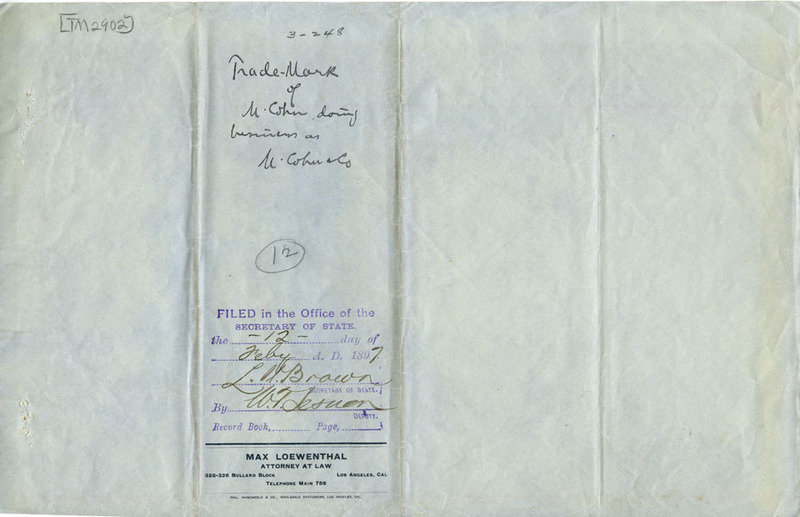 [TM2902]
3-248
Trade-Mark
of
M. Cohn doing
business as
M. Cohn & Co
12
FILED in the Office of the
SECRETARY OF STATE.
the -12- day of
Feby A. D. 1897.
L. H. Brown
SECRETARY OF STATE.
By
DEPUTY.
Record Book, Page,
MAX LOEWENTHAL
ATTORNEY AT LAW
325-326 BULLARD BLOCK LOS ANGELES, CAL
TELEPHONE MAIN 756
WHOLESALE STATIONERS, LOS ANGELES, CAL.